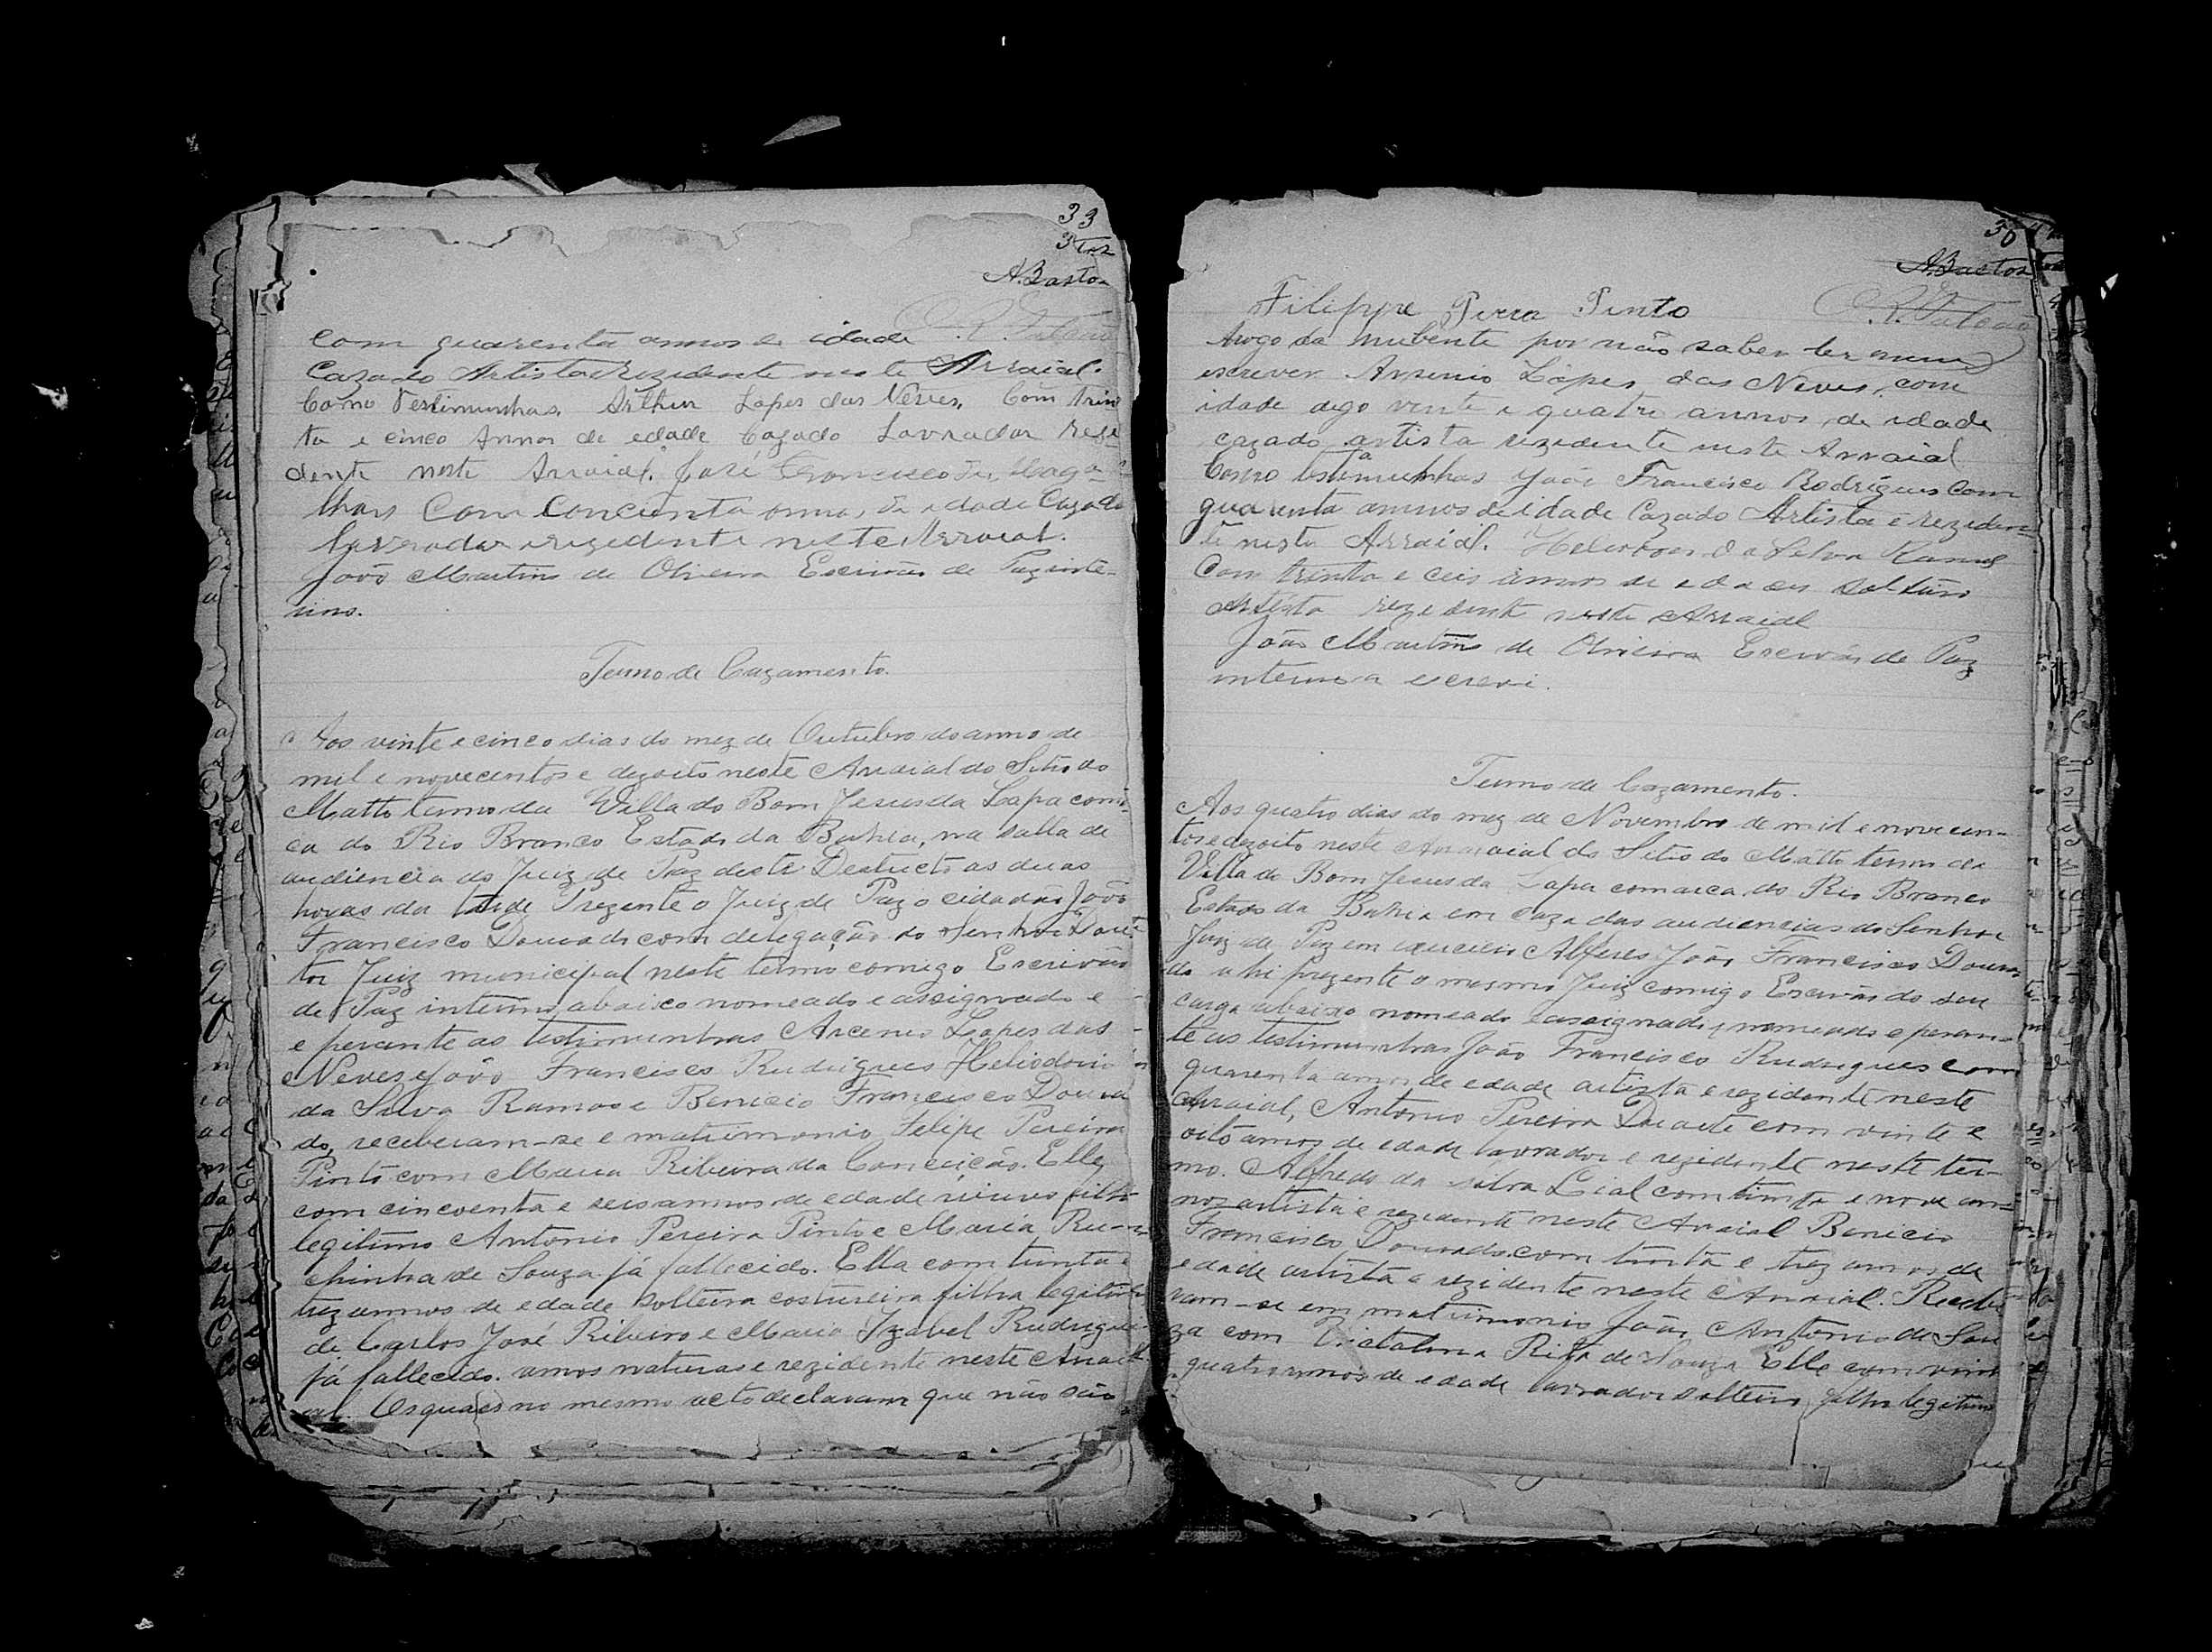 33
A. Bastos
com quarenta annos de idade
Cazado Artista rezidente neste Arraial.
Como Testimunhas, Arthur Lopes das Neves, Com trin
ta e cinco Annos de edade Cazado Lavrador resi
dente neste Arraial. José Francisco de Maga-
lhans Com Concuenta annos, de idade Cazado
lavrador irezidente neste Arraial.
João Martins de Oliveira Escrivão de Paz inte-
rino.
Termo de Cazamento.
Aos vinte e cinco dias do mez de Outubro do anno de
mil e novecentos e dezoito neste Arraial do Sitio do
Matto termo da Villa do Bom Jesus da Lapa comar-
ca do Rio Branco Estado da Bahia, na salla de
audiencia do Juiz de Paz deste Destricto as duas
horas da tarde Prezente o Juiz de Paz o cidadão João
Francisco Dourado com delegação do Senhor Dou-
tor Juiz municipal neste termo comigo Escrivão
de Paz interino abaixo nomeado e assignado e
e perante as testimunhas Arcenio Lopes das
Neves e João Francisco Rudrigues Heliodorio
da Silva Ramos e Benicio Francisco Doura
do, receberam-se e matrimonio Felipe Pereira
Pinto com Maria Ribeira da Conceição. Elle
com cincoenta e seis annos de edade viuvo filho
legitimo Antonio Pereira Pinto e Maria Ru-
chinha de Souza já fallecido. Ella com trinta e
trez annos de edade solteira costureira filha legitima
de Carlos José Ribeiro e Maria Izabel Rudrigues
já fallecido. amos naturas e rezidente neste Arrai
al. Os quaes no mesmo acto declaram que não são
30
A. Bastos
Filippe Perra Pinto
Arogo da nubente por não saber ler nem
escrever Arsenio Lopes das Neves, com
idade digo vente e quatro annos, de idade
cazado artista rezidente neste Arraial
Como testimunhas João Francisco Rodrigues Com
quarenta annos de idade Cazado Artista e reziden-
te neste Arraial. Heliodoro da Silva Ramos
Com trinta e ceis annos de edades Solteiro
Artista rezedente neste Arraial
João Martins de Oliveira Escrivão de Paz
interino a escrevi.
Termo de Cazamento.
Aos quatro dias do mez de Novembro de mil e novecen-
tos e dezoito neste Arraial do Sitio do Matto termo da
Villa do Bom Jesus da Lapa comarca do Rio Branco
Estado da Bahia em caza das audiencias do Senhor
Juiz de Paz em exercicio Alferes João Francisco Doura
do ahi prezente o mesmo Juiz comigo Escrivão do seu
cargo abaixo nomeado e assignado, nomeado e peran-
te as testimunhas João Francisco Rudrigues com
quarenta annos de edade artista e rezidente neste
Arraial, Antonio Pereira Duarte com vinte e
oito annos de edade lavrador e rezidente neste ter-
mo. Alfredo da Silva Lial com trinta e nove an-
nos artista e rezidente neste Arraial Benicio
Francisco Dourado com trinta e trez annos de
edade artista e rezidente neste Arraial. Recebe
ram-se em matrimonio João Antonio de Sou
za com Rita de Souza Elle com vint
quatro annos de edade lavrador solteiro, filho legitimo